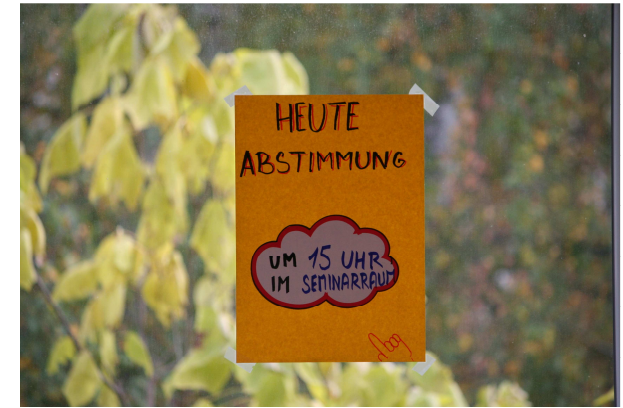 HEUTE
ABSTIMMUNG
UM 15 UHR
IM SEMINARRAUM